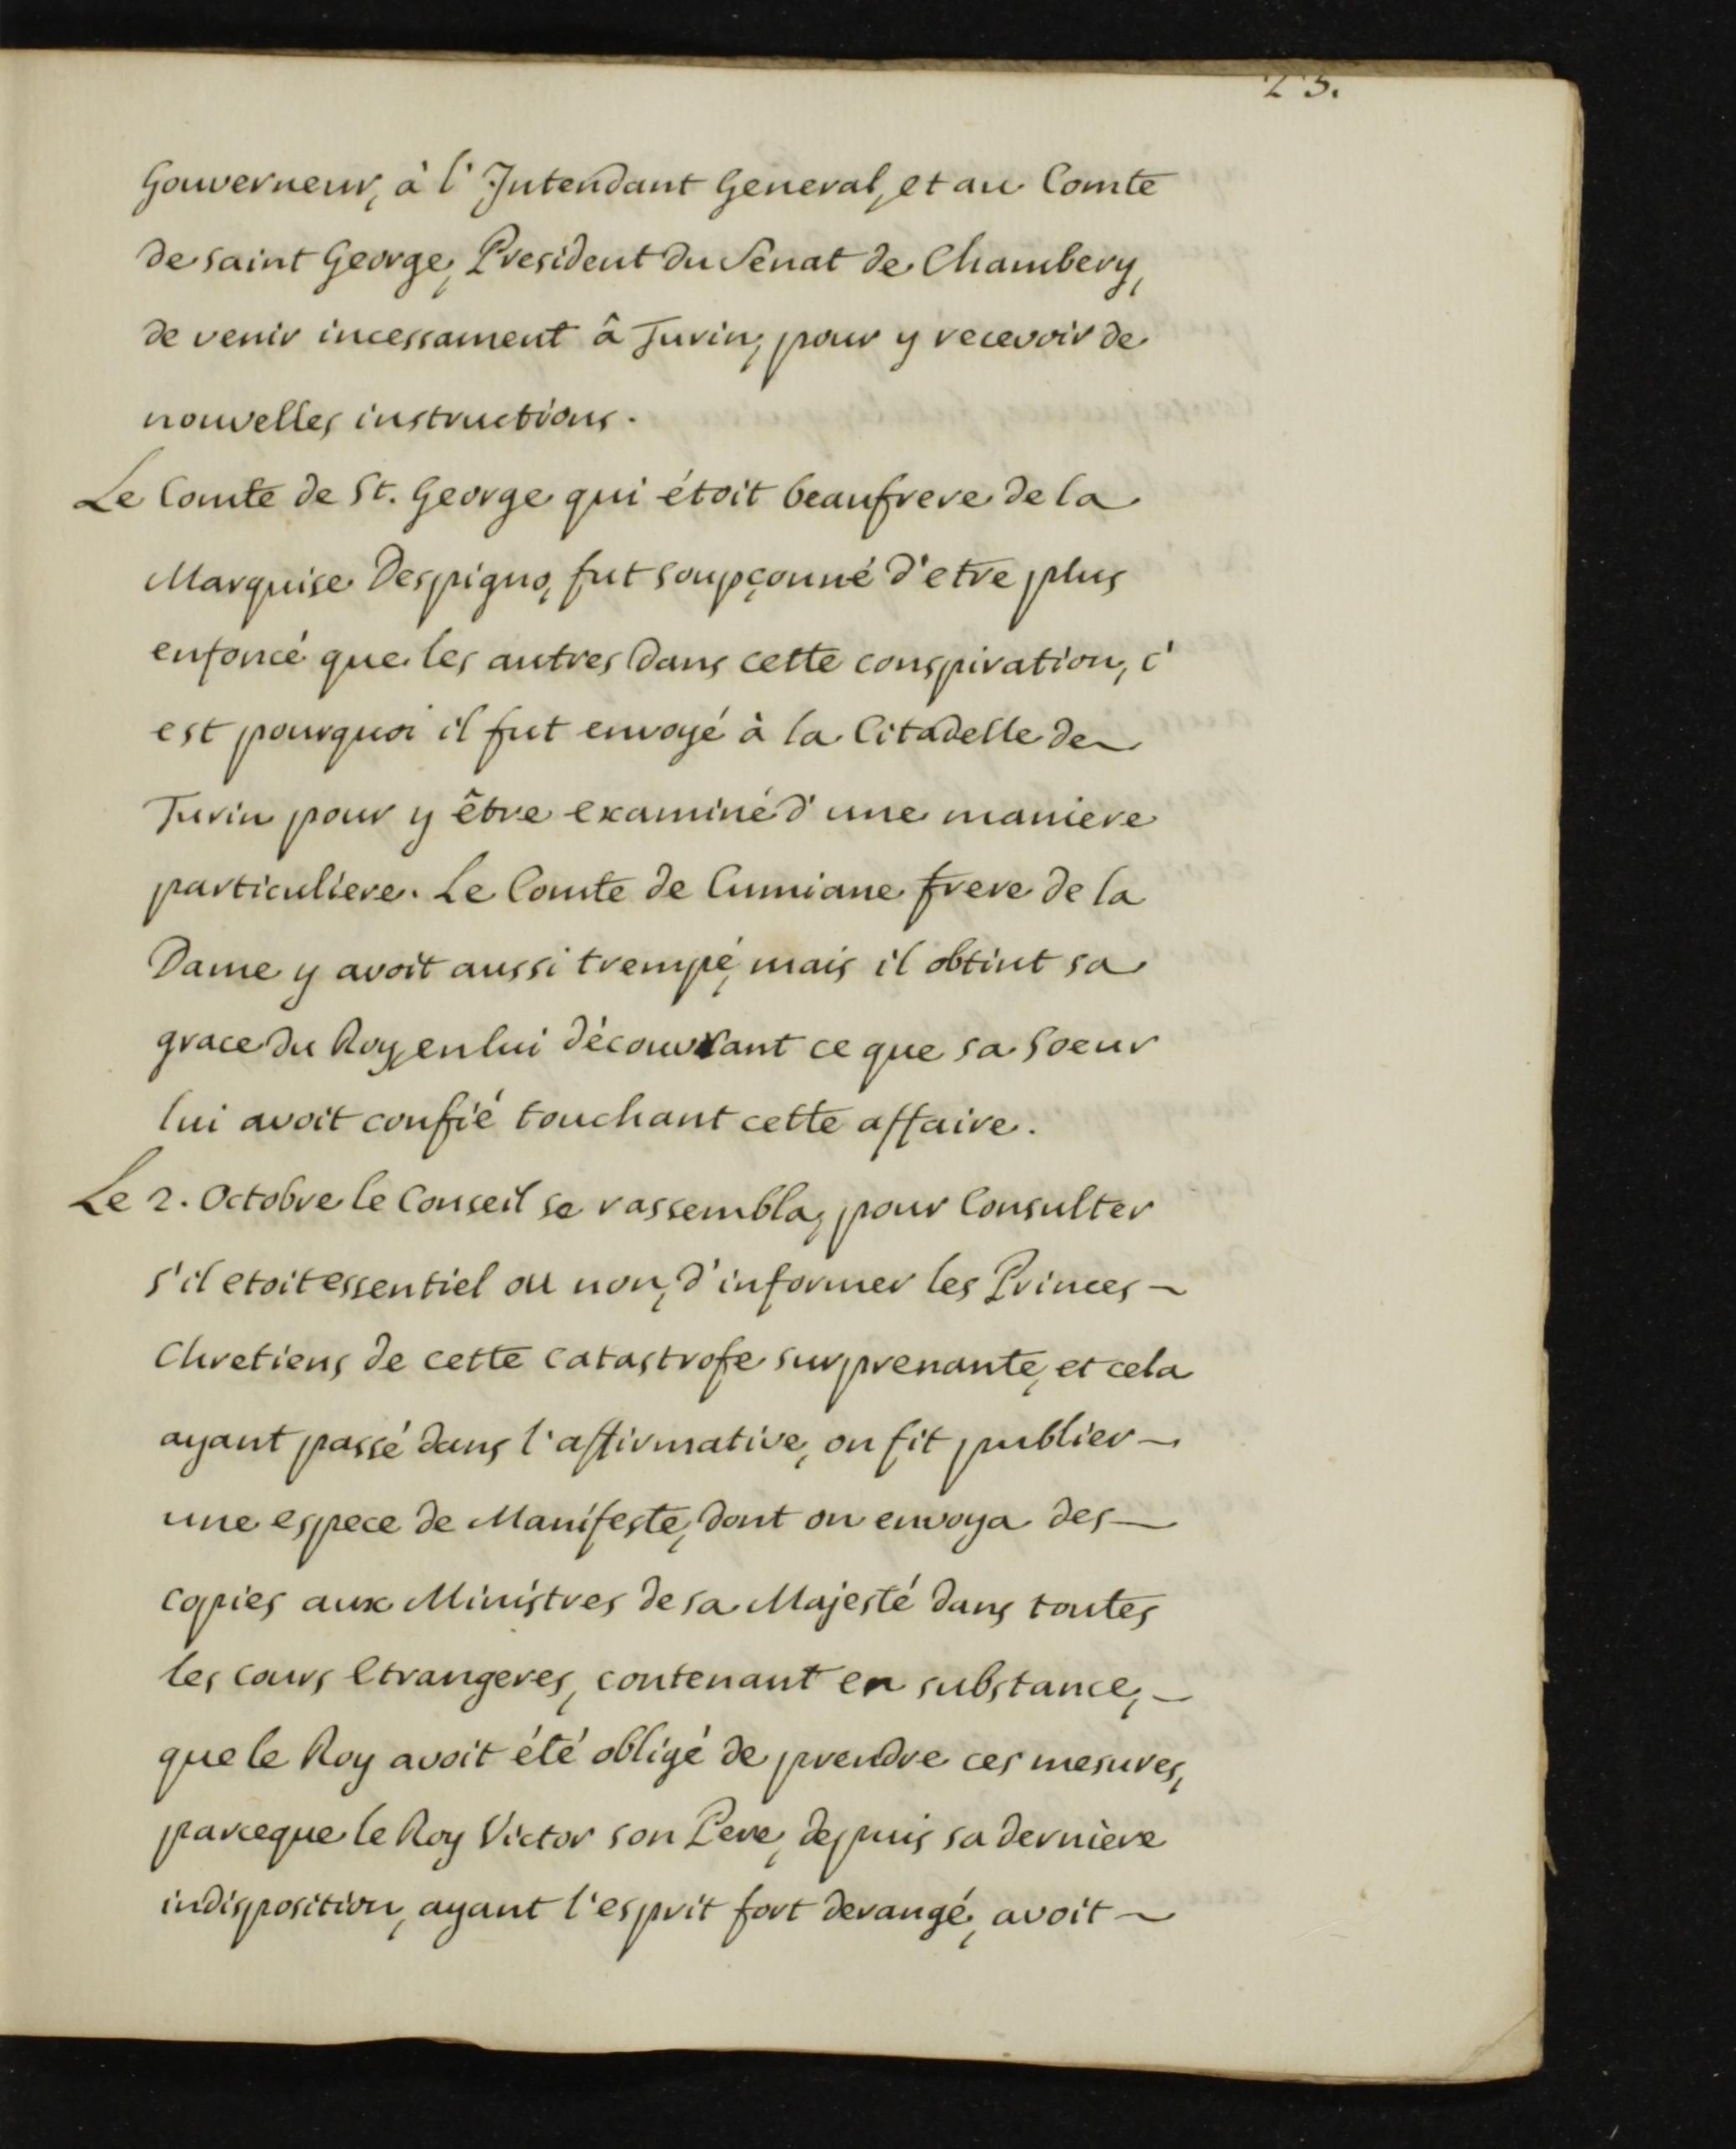 23.
Gouverneur, à l'Intendant General, et au Comte
de saint George, President du Senat de Chambery,
de venir incessament â Turin, pour y recevoir de
nouvelles instructions.
Le Comte de St. George qui étoit beaufrere de la
Marquise Despigno, fut soupçonné d'etre plus
enfoncé que les autres dans cette conspiration, c'
est pourquoi il fut envoyé à la Citadelle de
Turin pour y être examiné d'une maniere
particuliere. Le Comte de Cumiane frere de la
Dame y avoit aussi trempé, mais il obtint sa
grace du Roy, en lui découvrant ce que sa soeur
lui avoit confié touchant cette affaire.
Le 2. Octobre le Conseil se rassembla, pour Consulter
s'il etoit essentiel ou non, d'informer les Princes
Chretiens de cette catastrofe surprenante, et cela
ayant passé dans l'affirmative, on fit publier
une espece de Manifeste, dont on envoya des
copies aux Ministres de sa Majesté dans toutes
les cours Etrangeres, contenant en substance,
que le Roy avoit été obligé de prendre ces mesures,
parceque le Roy Victor son Pere, depuis sa dernière
indisposition, ayant l'esprit fort derangé, avoit